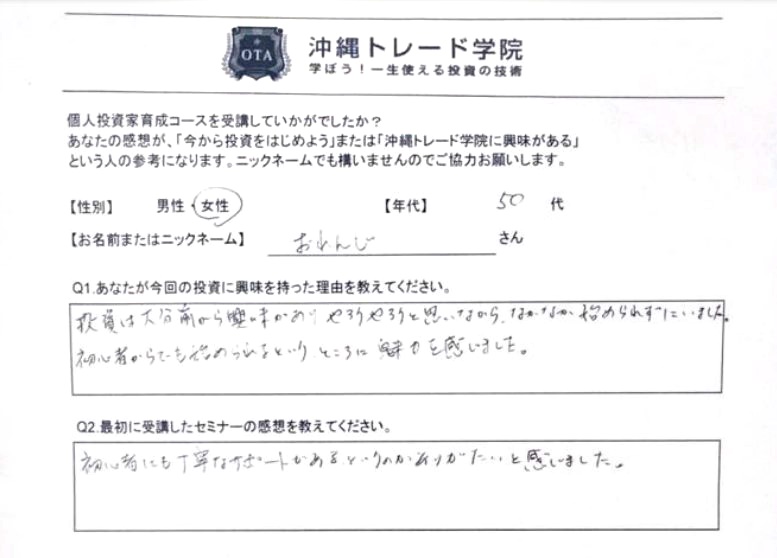 OTA
沖縄トレード学院
学ぼう！一生使える投資の技術
個人投資家育成コースを受講していかがでしたか？
あなたの感想が、「今から投資をはじめよう」または「沖縄トレード学院に興味がある」
という人の参考になります。ニックネームでも構いませんのでご協力お願いします。
【性別】 男性・女性 【年代】 50 代
【お名前またはニックネーム】 おれんじ さん
Q1.あなたが今回の投資に興味を持った理由を教えてください。
投資は大分前から興味がありやろうやろうと思いながら、なかなか始められずにいました。
初心者からでも始められるという、ところに魅力を感じました。
Q2.最初に受講したセミナーの感想を教えてください。
初心者にも丁寧なサポートがある、というのがありがたいと感じました。